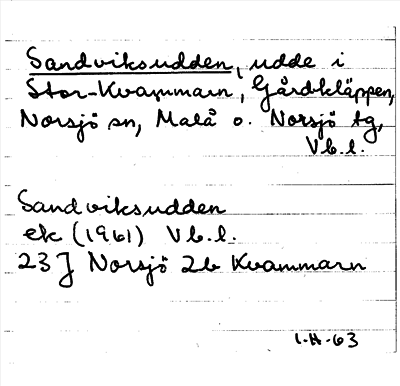 Sandviksudden, udde i
Stor-Kvammarn, Gårdkläppen,
Norsjö sn, Malå o. Norsjö tg,
Vb.l.
Sandviksudden
ek (1961) Vb.l.
23J Norsjö 2b Kvammarn
1-H-63